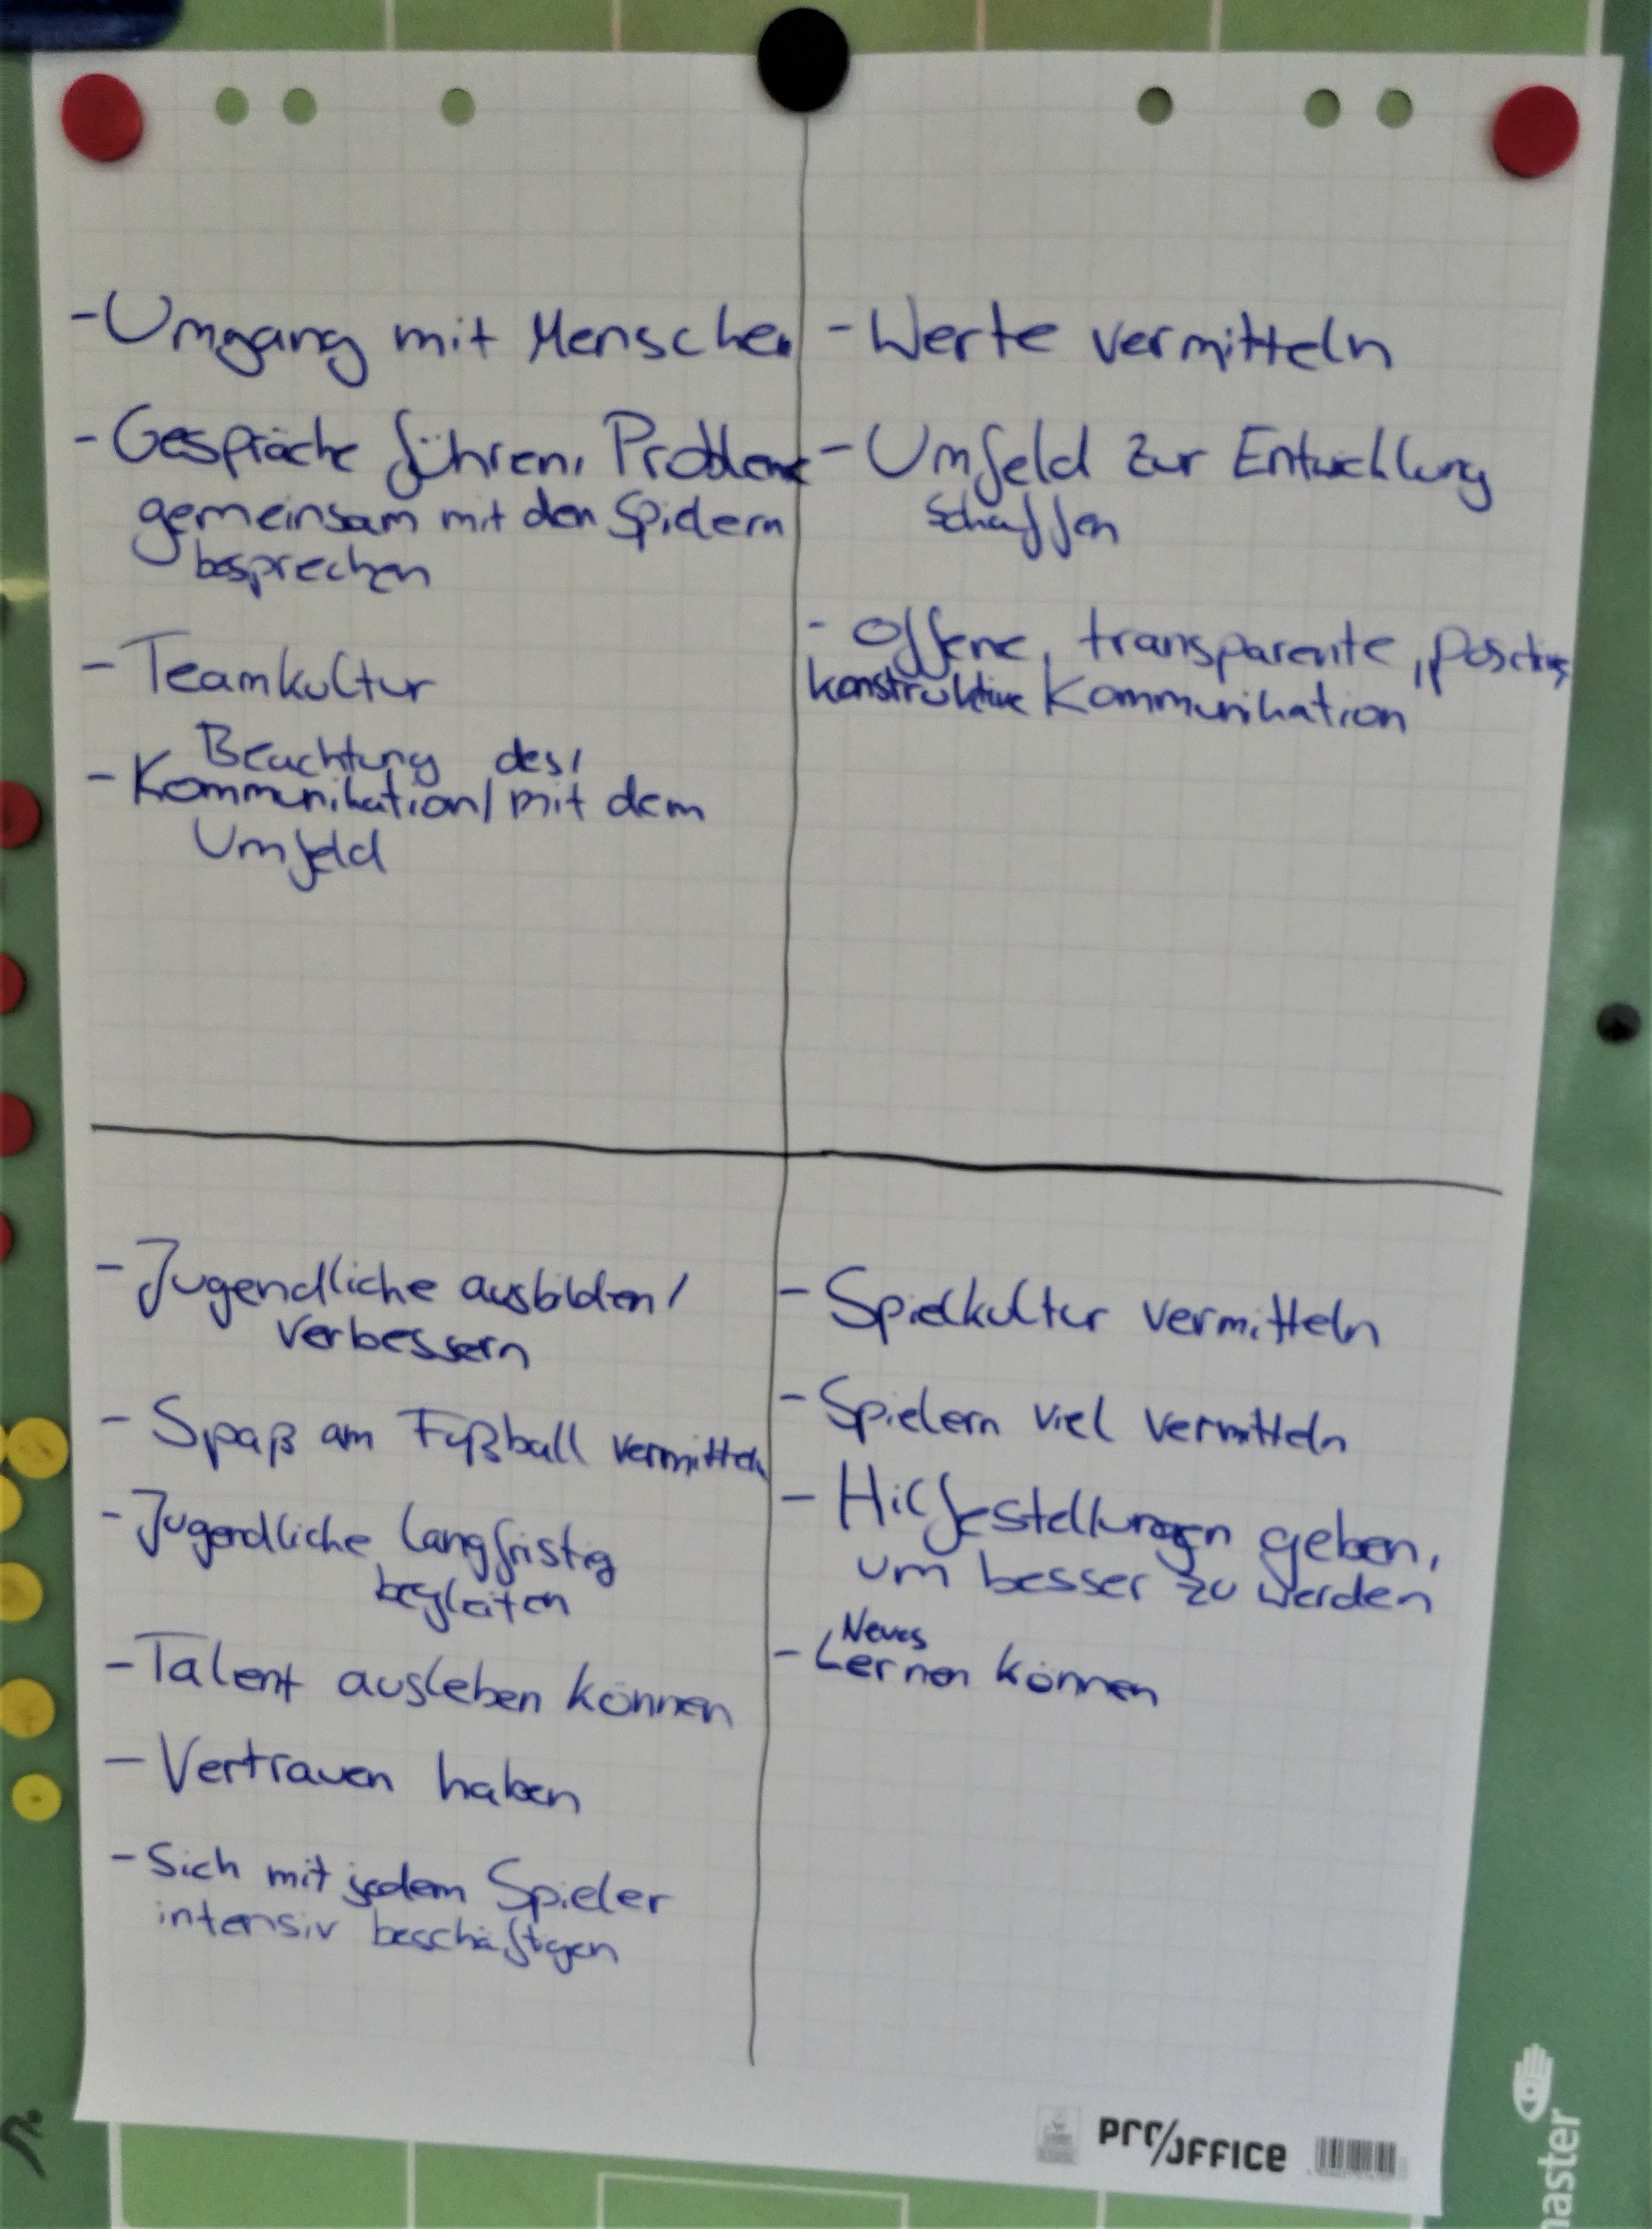 - Umgang mit Menschen
- Gespräche führen, Probleme
gemeinsam mit den Spielern
besprechen
- Teamkultur
Beachtung des/
- Kommunikation/mit dem
Umfeld
- Werte vermitteln
- Umfeld zur Entwicklung
schaffen
- Offene, transparente, positive,
konstruktive Kommunikation
- Jugendliche ausbilden/
verbessern
- Spaß am Fußball vermitteln
- Jugendliche langfristig
begleiten
- Talent ausleben können
- Vertrauen haben
- Sich mit jedem Spieler
intensiv beschäftigen
- Spielkultur vermitteln
- Spielern viel vermitteln
- Hilfestellungen geben,
um besser zu werden
Neues
- Lernen können
PRO/OFFICE
master